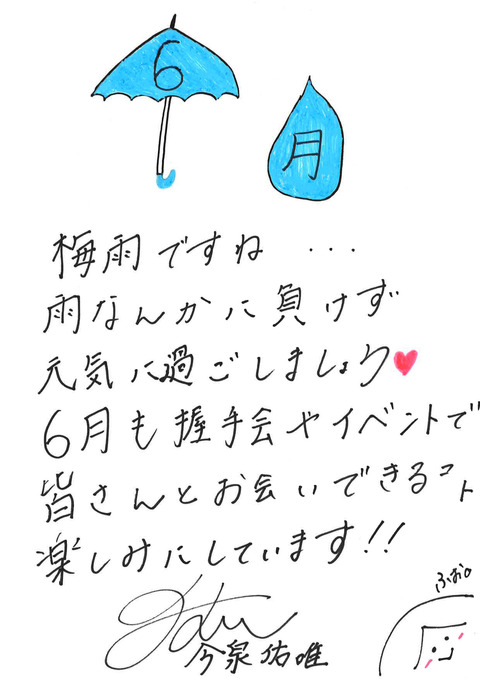 6
月
梅雨ですね ...
雨なんかに負けず
元気に過ごしましょう♥
6月も握手会やイベントで
皆さんとお会いできるコト
楽しみにしています!!
今泉佑唯
ふお。